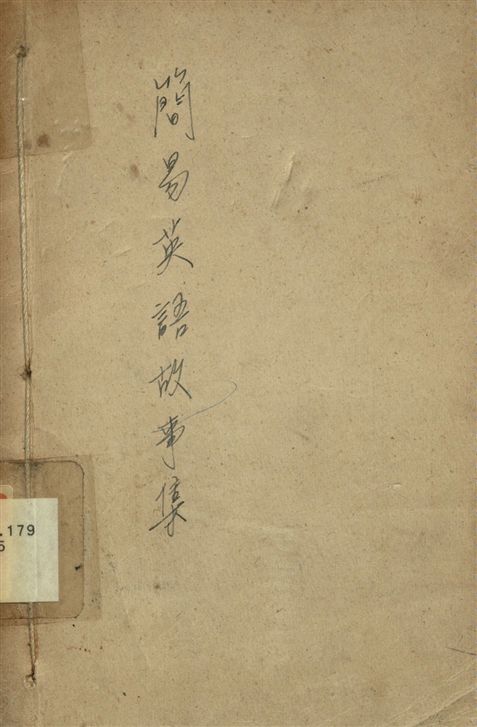 簡易英語故事集
.179
5